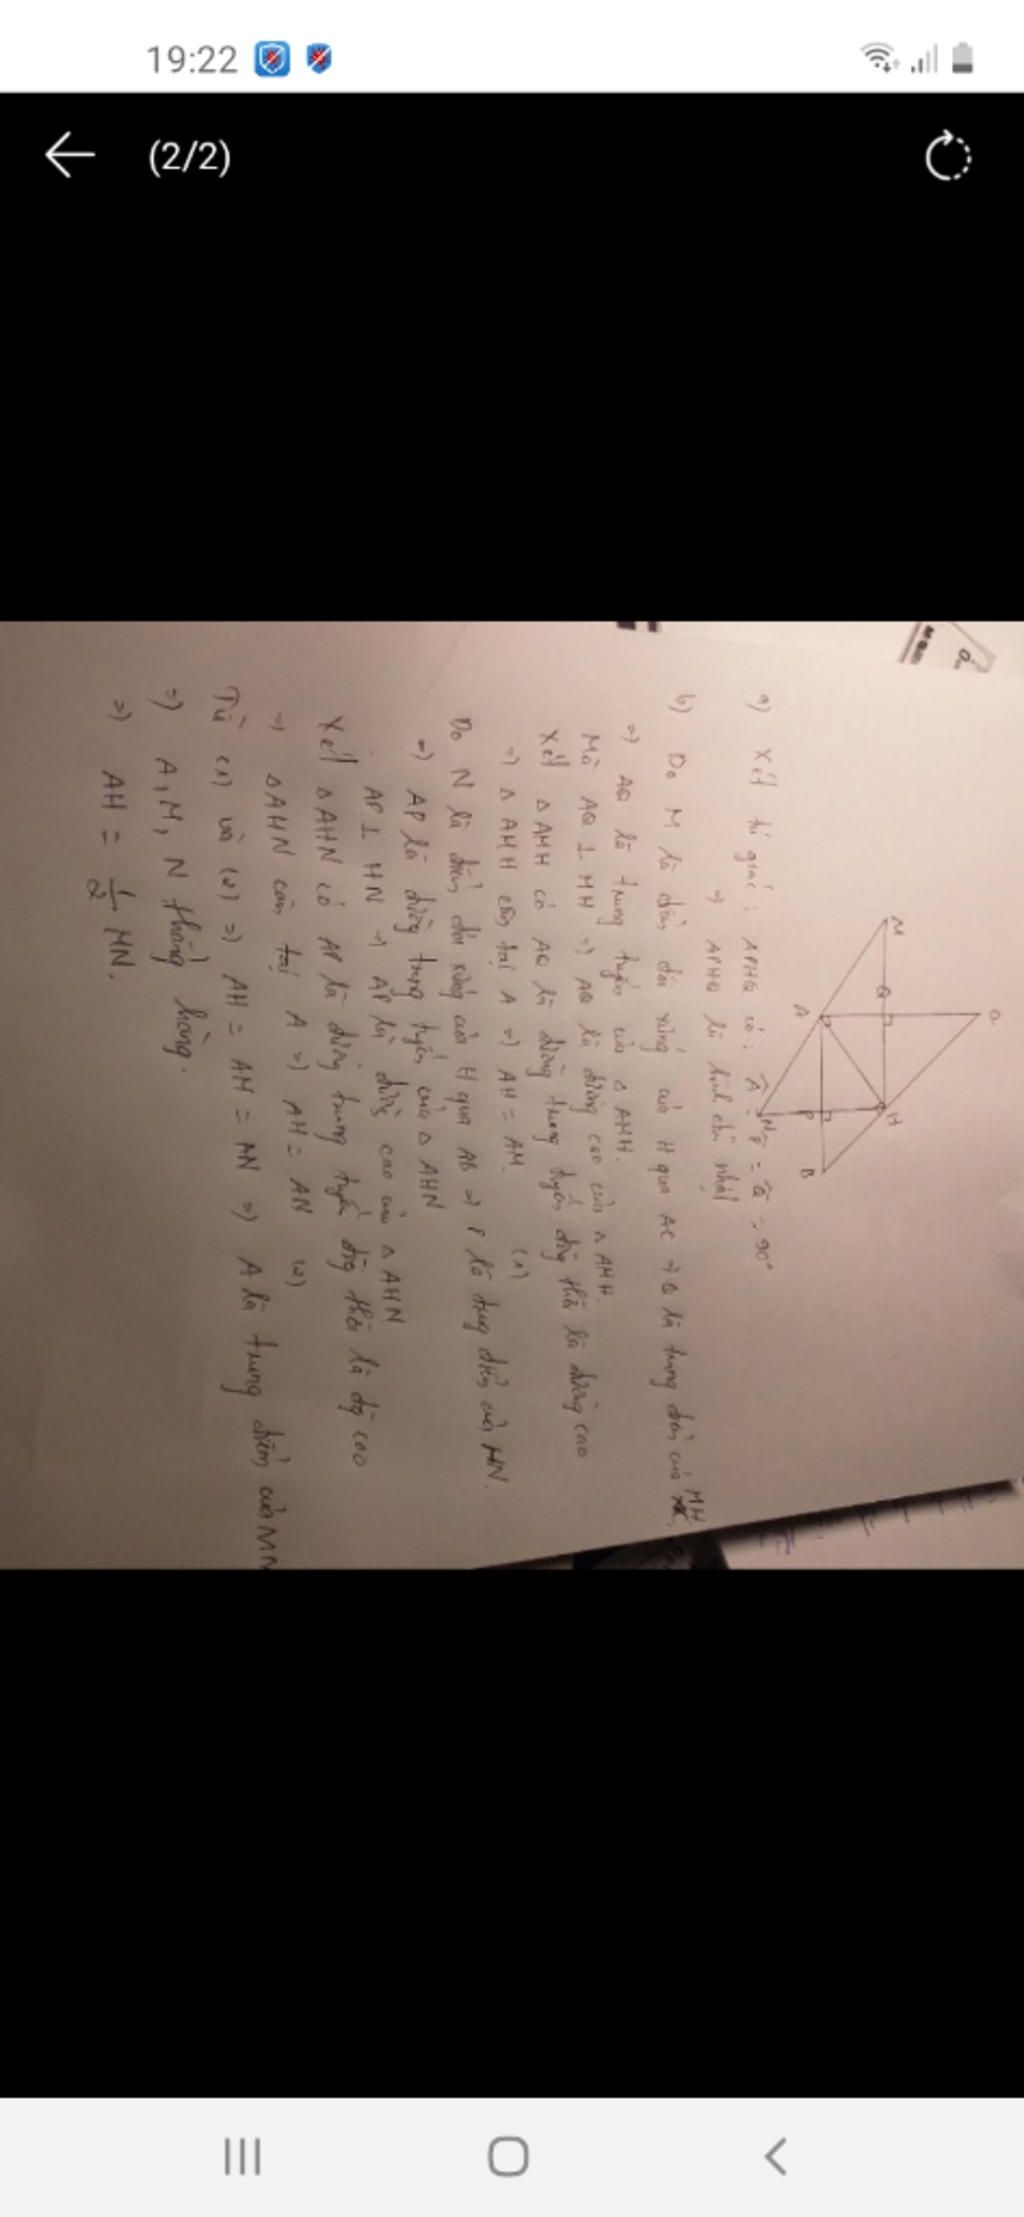 19:22
(2/2)
M
Q
C
A
H
N
P
B
a) Xét tứ giác : APHQ có : Â = P̂ = Q̂ = 90°
→ APHQ là hình chữ nhật
b) Do M là điểm đối xứng của H qua AC → Q là trung điểm của MH
=) AQ là trung tuyến của △ AMH.
Mà AQ ⊥ MH =) AQ là đường cao của △ AMH.
Xét △ AMH có AQ là đường trung tuyến đồng thời là đường cao
=) △ AMH cân tại A =) AH = AM. (1)
Do N là điểm đối xứng của H qua AB =) P là trung điểm của HN.
=) AP là đường trung tuyến của △ AHN
AP ⊥ HN → AP là đường cao của △ AHN
Xét △ AHN có AP là đường trung tuyến đồng thời là đg cao
→ △ AHN cân tại A =) AH = AN (2)
Từ (1) và (2) =) AH = AM = AN =) A là trung điểm của MN
=) A, M, N thẳng hàng.
=) AH = 1/2 MN.